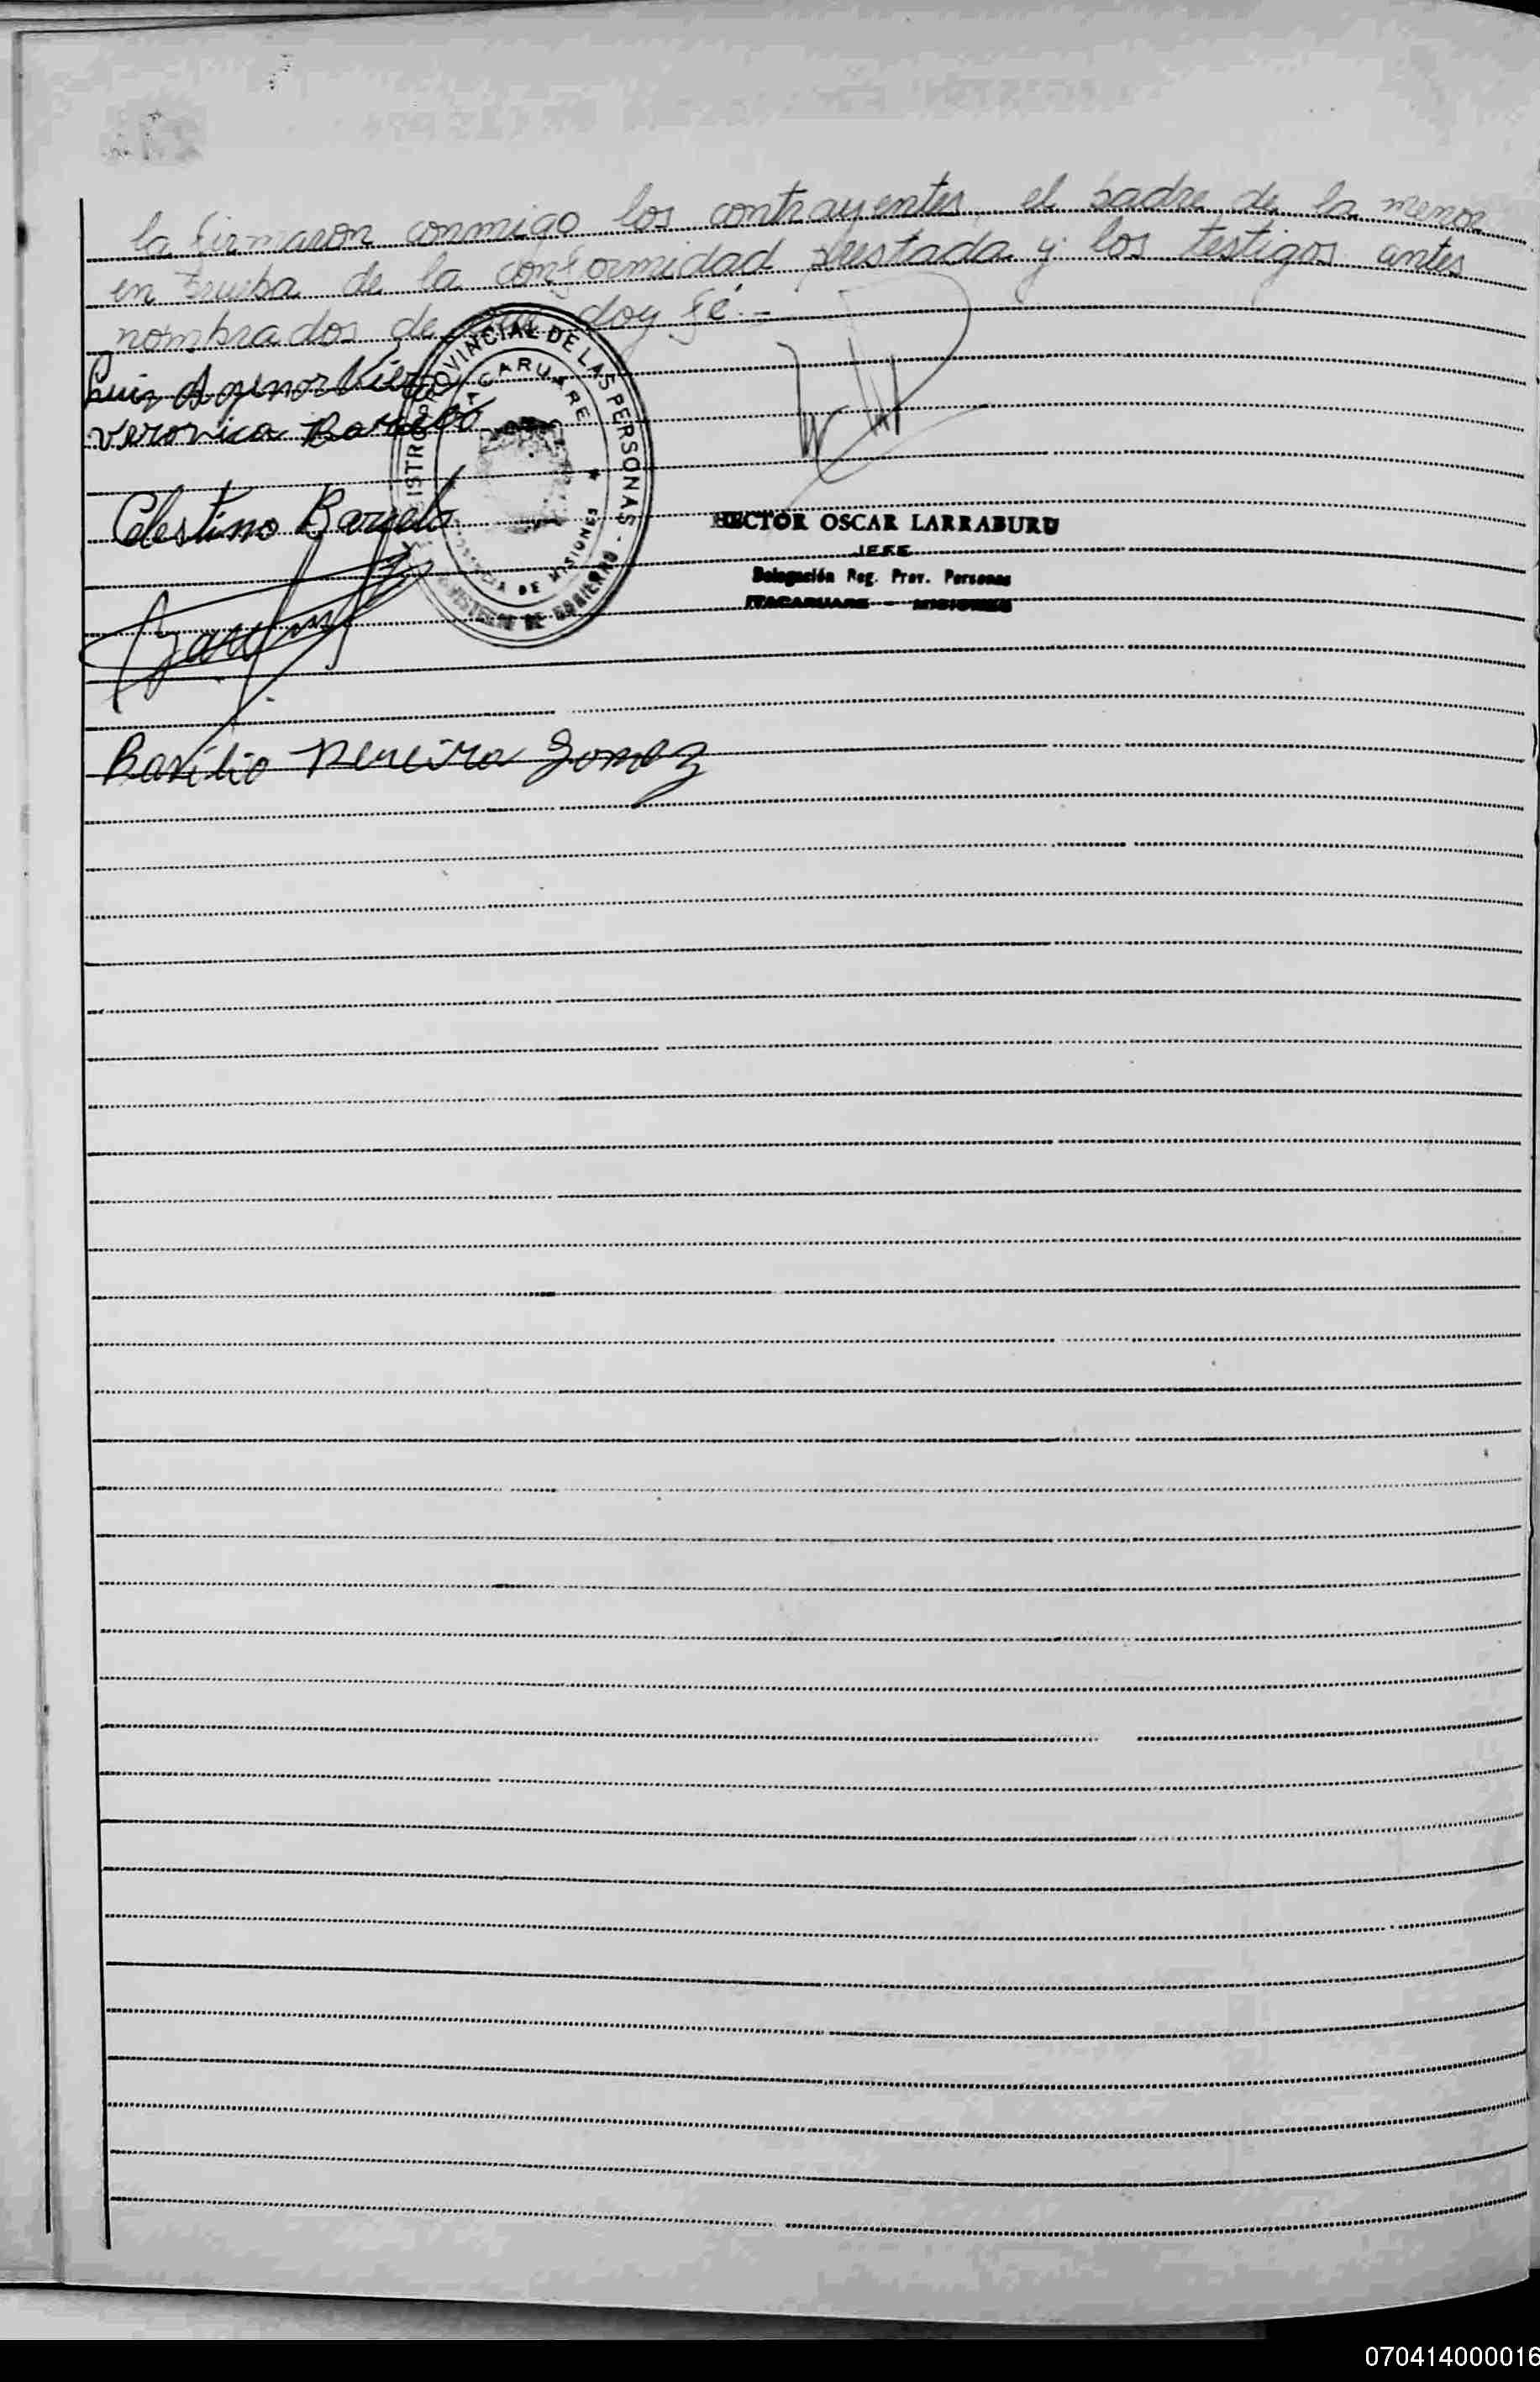 la firmaron conmigo los contrayentes, el padre de la menor
en prueba de la conformidad prestada y los testigos antes
nombrados de doy fé.-
Luis Agenor
Veronica Barcelo
Celestino Barcelo
Basilio Pereira Gomez
REGISTRO PROVINCIAL DE LAS PERSONAS -
MINISTERIO DE GOBIERNO
ITACARUARE
PROVINCIA DE MISIONES
HECTOR OSCAR LARRABURU
JEFE
Delegación Reg. Prov. Personas
ITACARUARE - MISIONES
070414000016